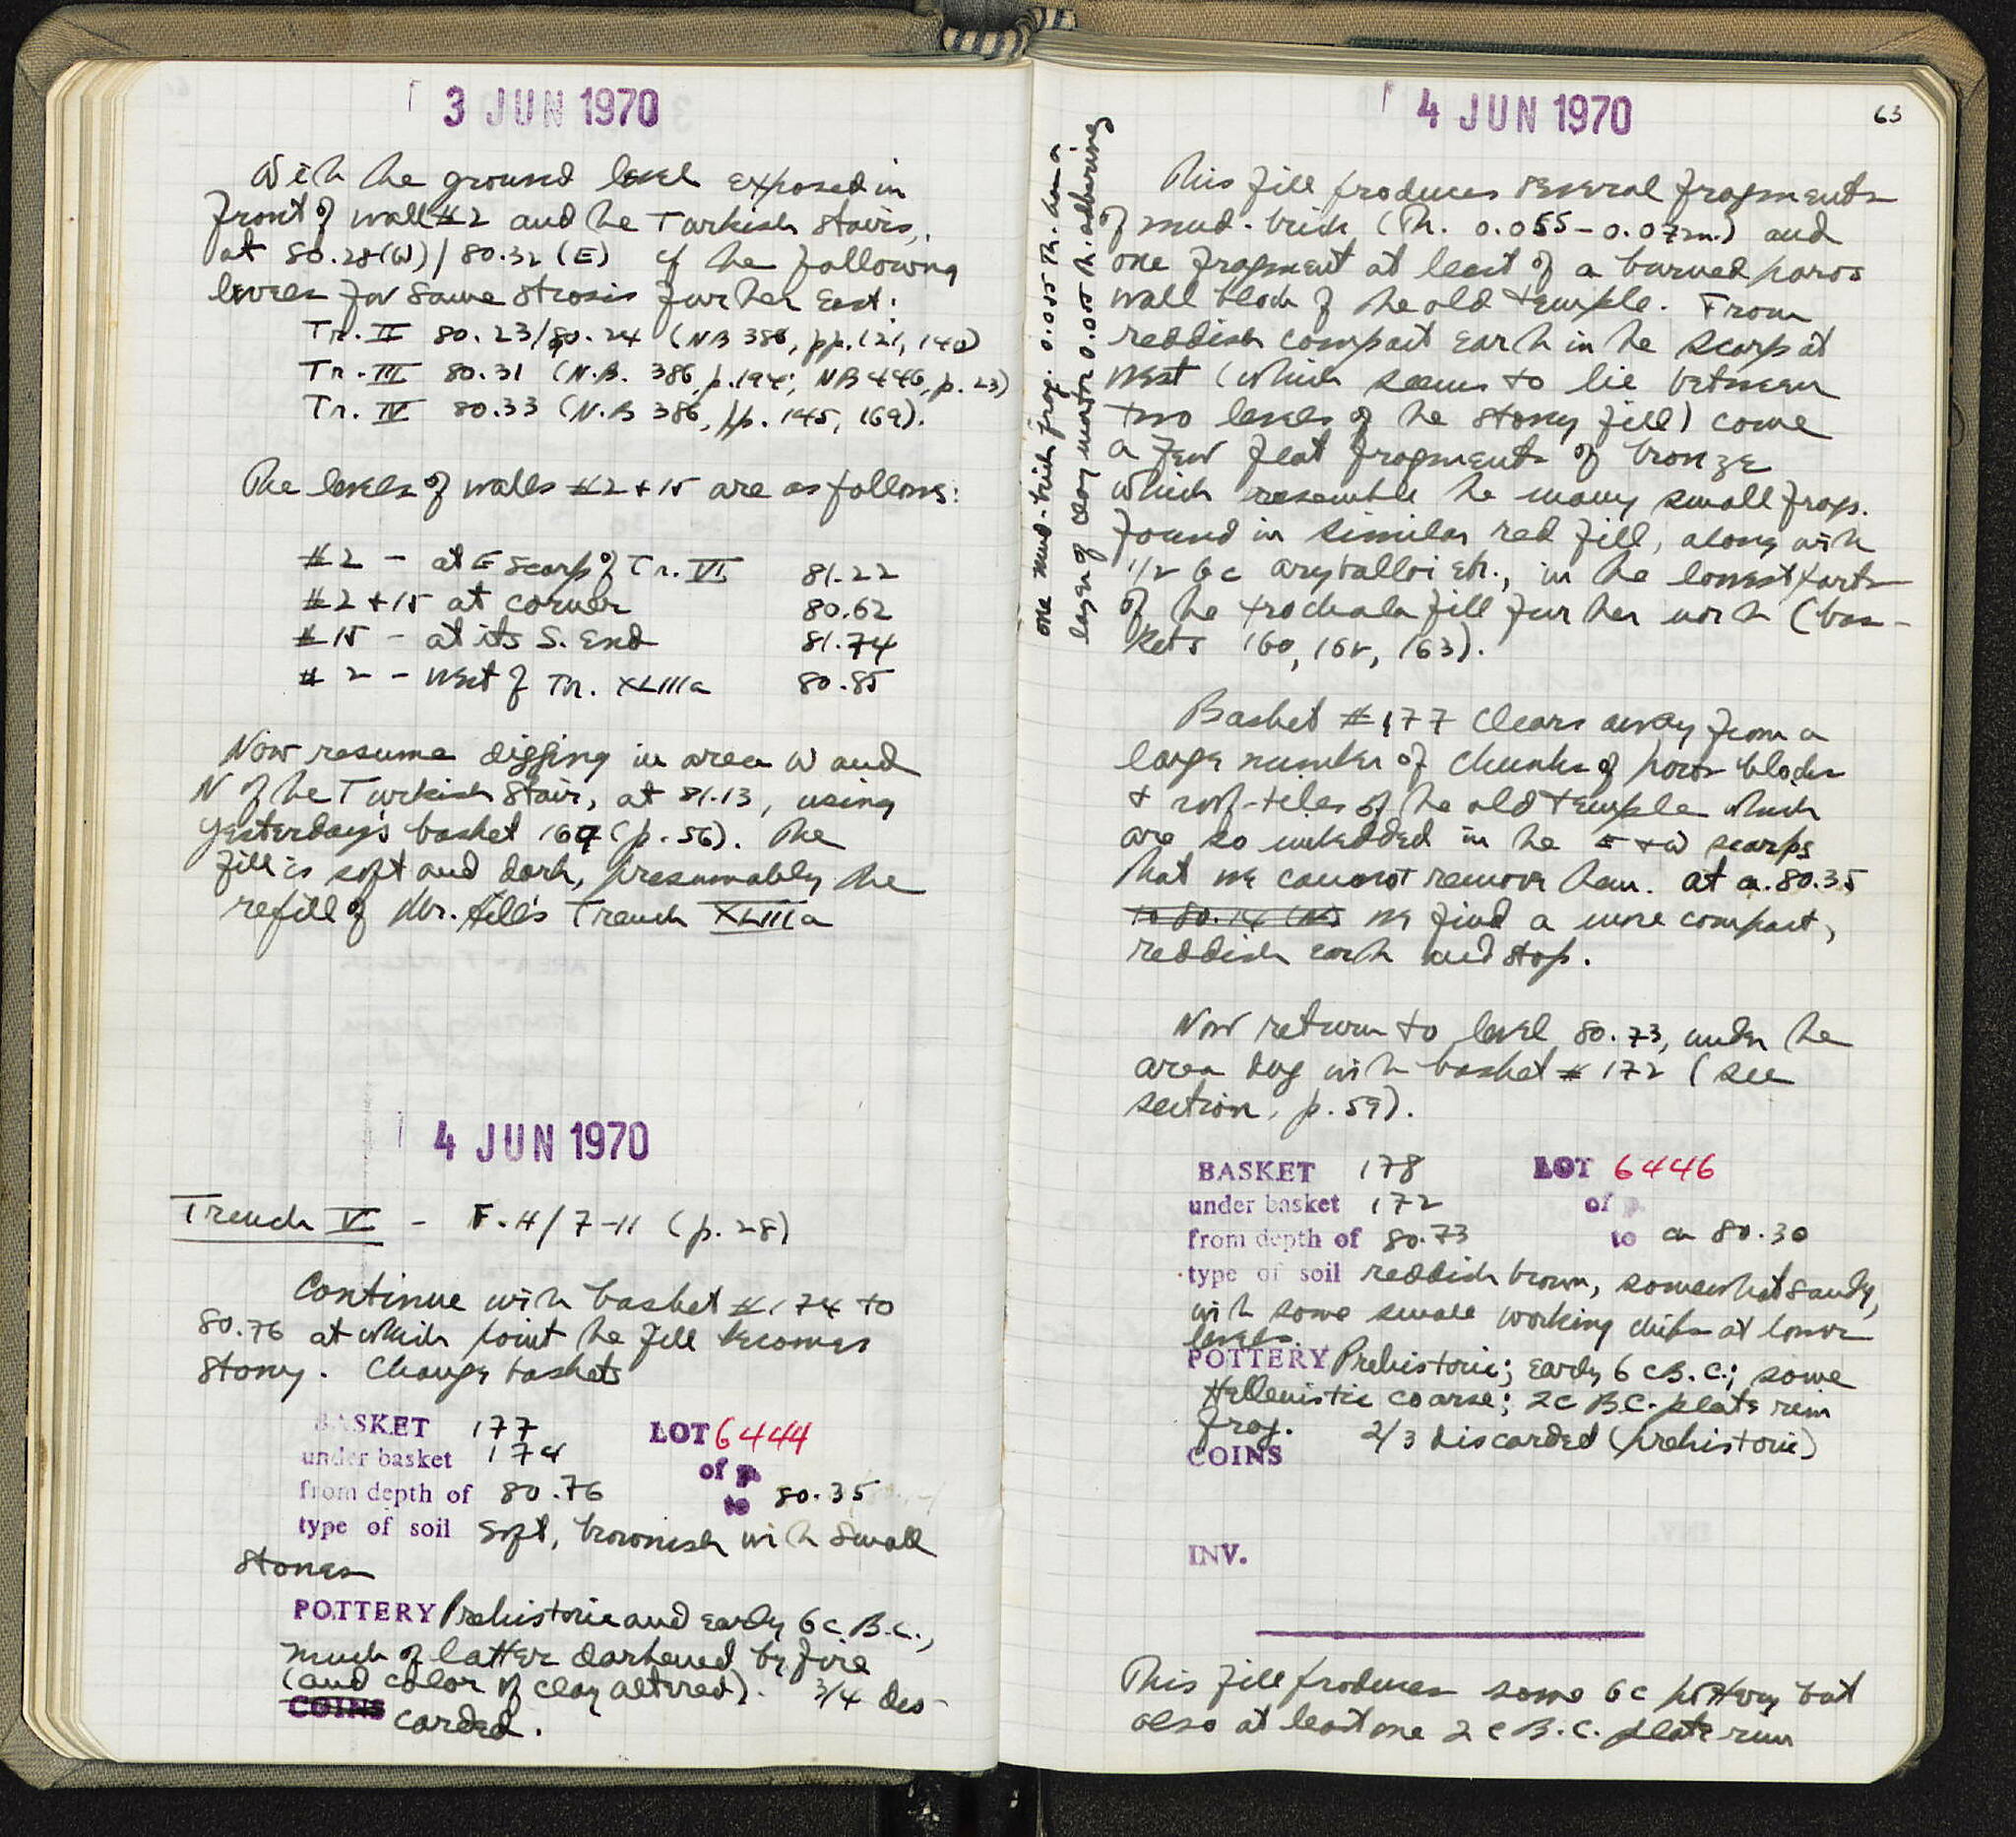 3 JUN 1970
With the ground level exposed in
front of wall #2 and the Turkish stairs,
at 80.28(W)/80.32(E) cf the following
levels for same strosis further East:
Tr. II 80.23/80.24 (NB 386, pp. 121, 140)
Tr. III 80.31 (N.B. 386, p. 194; NB 446, p. 23)
Tr. IV 80.33 (N.B 386, pp. 145, 169).
The levels of walls #2+15 are as follows:
#2 - at E scarp of Tr. VI 81.22
#2+15 at corner 80.62
#15 - at its S. End 81.74
#2 - west of Tr. XLIIIa 80.85
Now resume digging in area W and
N of the Turkish stair, at 81.13, using
yesterday's basket 169 (p. 56). The
fill is soft and dark, presumably the
refill of Mr. Hill's Trench XLIIIa
4 JUN 1970
Trench V - F.H/7-11 (p. 28)
Continue with basket #174 to
80.76 at which point the fill becomes
stony. Change baskets
BASKET 177 LOT 6444
under basket 174 of p.
from depth of 80.76 to 80.35
type of soil soft, brownish with small
stones
POTTERY Prehistoric and early 6c. B.C.,
much of latter darkened by fire
(and color of clay altered). 3/4 dis-
COINS carded.
4 JUN 1970
63
one mud-brick frag. 0.055 Th. has a
layer of clay mortar 0.055 th. adhering
This fill produces several fragments
of mud-brick (Th. 0.055-0.07m.) and
one fragment at least of a burned poros
wall block of the old temple. From
reddish compact earth in the scarp at
west (which seems to lie between
two levels of the stony fill) come
a few flat fragments of bronze
which resemble the many small frags.
found in similar red fill, along with
1/2 6c aryballoi etc., in the lowest parts
of the trochala fill further north (bas-
kets 160, 162, 163).
Basket #177 clears away from a
large number of chunks of poros blocks
+ roof-tiles of the old temple which
are so imbedded in the E+W scarps
that we cannot remove them. at ca. 80.35
to 80.14 (N) we find a more compact,
reddish earth and stop.
Now return to level 80.73, under the
area dug with basket #172 (see
section, p. 59).
BASKET 178 LOT 6446
under basket 172 of p.
from depth of 80.73 to ca 80.30
type of soil reddish brown, somewhat sandy,
with some small working chips at lower
levels.
POTTERY Prehistoric; early 6 c B.C.; some
Hellenistic coarse; 2c B.C. plate rim
frag. 2/3 discarded (prehistoric)
COINS
INV.
This fill produces some 6c pottery but
also at least one 2 c B.C. plate rim